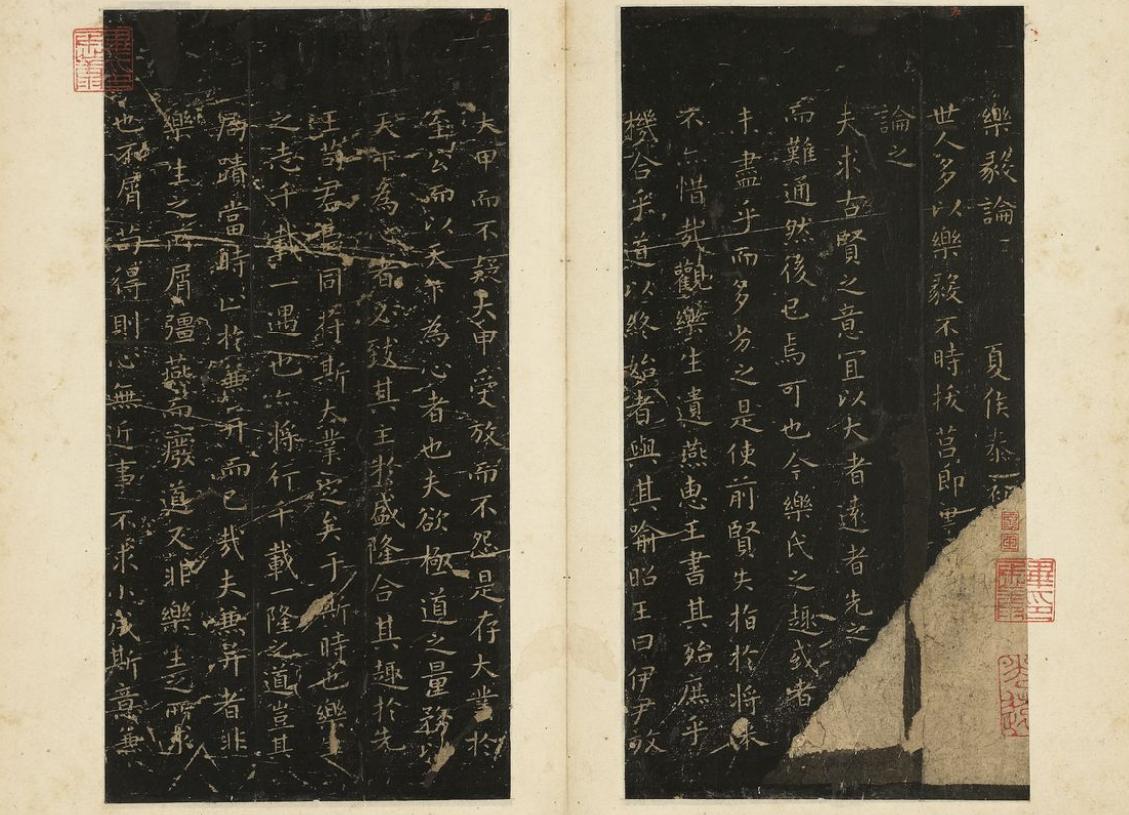 樂毅論 夏侯泰初
世人多以樂毅不時拔莒即墨
論之
夫求古賢之意宜以大者遠者先之
而難通然後已焉可也今樂氏之趣或者
未盡乎而多劣之是使前賢失指於將來
不亦惜哉觀樂生遺燕惠王書其殆庶乎
機合乎道以終始者與其喻昭王曰伊尹放
大甲而不疑大甲受放而不怨是存大業於
至公而以天下為心者也夫欲極道之量務以
天下為心者必致其主於盛隆合其趣於先
王苟君臣同符斯大業定矣于斯時也樂
之志千載一遇也亦將行千載一隆之道豈其
局蹟當時止於兼并而已哉夫兼并者非
樂生之所屑彊燕而廢道又非樂生之所求
也不屑苟得則心無近事不求小成斯意兼